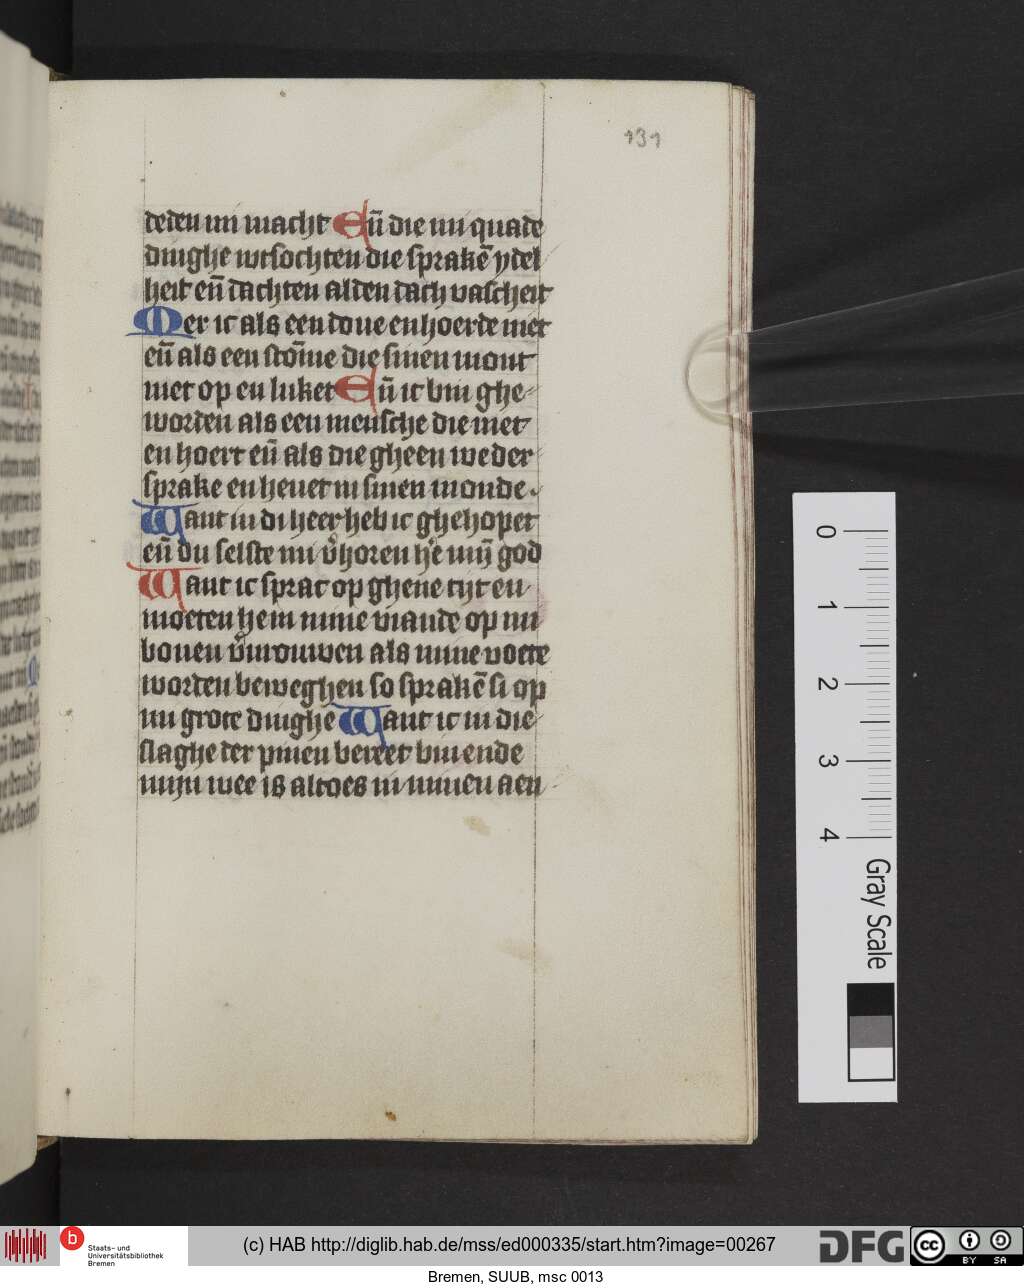 131
deden mi macht Eñ die mi quade
dinghe wtsochten die sprakē ydel
heit eñ dachten alden dach valscheit
Mer ic als een doue en hoerde niet
eñ als een stōme die sinen mont
niet op en luket Eñ ic bin ghe
worden als een mensche die niet
en hoert eñ als die gheen weder
sprake en heuet in sinen monde.
Want in di heer heb ic ghehopet
eñ du selste mi v̄horen he mijn god
Want ic sprac op ghene tijt en
moeten hem mine viande op mi
bouen v̄urouwen als mine voete
worden beweghen so sprakē si op
mi grote dinghe Want ic in die
slaghe der pinen bereet bin ende
mijn wee is altoes in minen aen
0
1
2
3
4
Gray Scale
b
Staats- und
Universitätsbibliothek
Bremen
(c) HAB http://diglib.hab.de/mss/ed000335/start.htm?image=00267
DFG
cc
BY SA
Bremen, SUUB, msc 0013